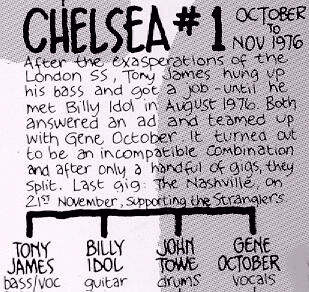 CHELSEA #1 OCTOBER
to
NOV 1976
After the exasperations of the
London SS, Tony James hung up
his bass and got a job - until he
met Billy Idol in August 1976. Both
answered an ad and teamed up
with Gene October. It turned out
to be an incompatible combination
and after only a handful of gigs, they
split. Last gig: The Nashville, on
21st November, supporting the Stranglers.
TONY JAMES bass/voc
BILLY IDOL guitar
JOHN TOWE drums
GENE OCTOBER vocals